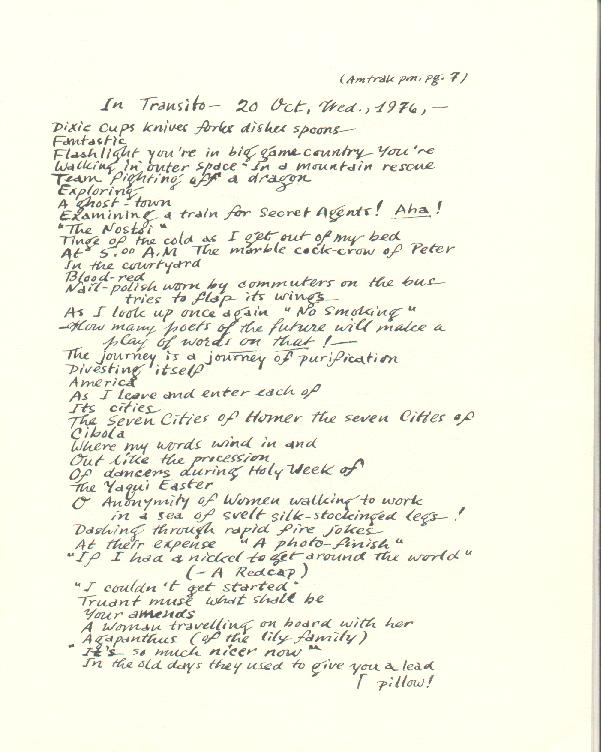 (Amtrak pm. pg. 7)
In Transito— 20 Oct, Wed., 1976, —
Dixie Cups knives forks dishes spoons—
Fantastic
Flashlight you're in big game country You're
Walking in outer space In a mountain rescue
Team fighting off a dragon
Exploring
A ghost town
Examining a train for Secret Agents! Aha!
"The Nostoi"
Tinge of the cold as I get out of my bed
At 5:00 A.M The marble cock-crow of Peter
In the courtyard
Blood-red
Nail-polish worn by commuters on the bus
tries to flap its wings—
As I look up once again "No Smoking"
—How many poets of the future will make a
play of words on that!—
The journey is a journey of purification
Divesting itself
America
As I leave and enter each of
Its cities
The Seven Cities of Homer the seven Cities of
Cibola
Where my words wind in and
Out like the procession
Of dancers during Holy Week of
The Yaqui Easter
O Anonymity of Women walking to work
in a sea of svelt silk-stockinged legs!
Dashing through rapid fire jokes
At their expense "A photo-finish"
"If I had a nickel to get around the world"
(— A Redcap)
"I couldn't get started"
Truant muse what shall be
Your amends
A woman travelling on board with her
Agapanthus (of the lily family)
"It's so much nicer now"
In the old days they used to give you a lead
pillow!